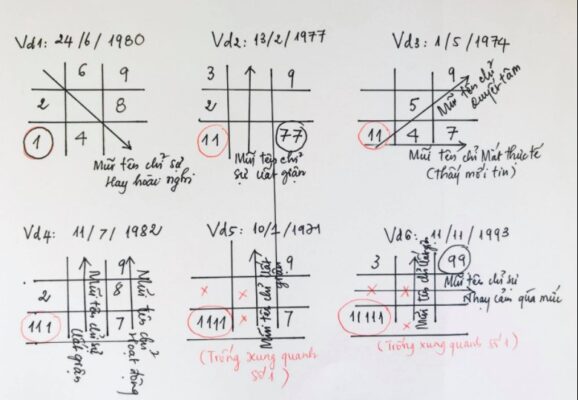 Vd1: 24/6/1980
6 9
2 8
1 4
Mũi tên chỉ sự
Hay hoài nghi
Vd2: 13/2/1977
3 9
2
11 77
Mũi tên chỉ
sự uất giận
Vd3: 1/5/1974
9
5
11 4 7
Mũi tên chỉ
quyết tâm
Mũi tên chỉ Mắt thực tế
(thấy mới tin)
Vd4: 11/7/1982
9
2 8
111 7
Mũi tên chỉ sự
Uất giận
Mũi tên chỉ
Hoạt động
Vd5: 10/1/1971
9
x x
1111 x 7
Mũi tên chỉ Uất
giận
(Trống xung quanh
số 1)
Vd6: 11/11/1993
3 99
x x
11111 x
Mũi tên chỉ Uất giận
Mũi tên chỉ sự
Nhạy cảm quá mức
(Trống xung quanh số 1)